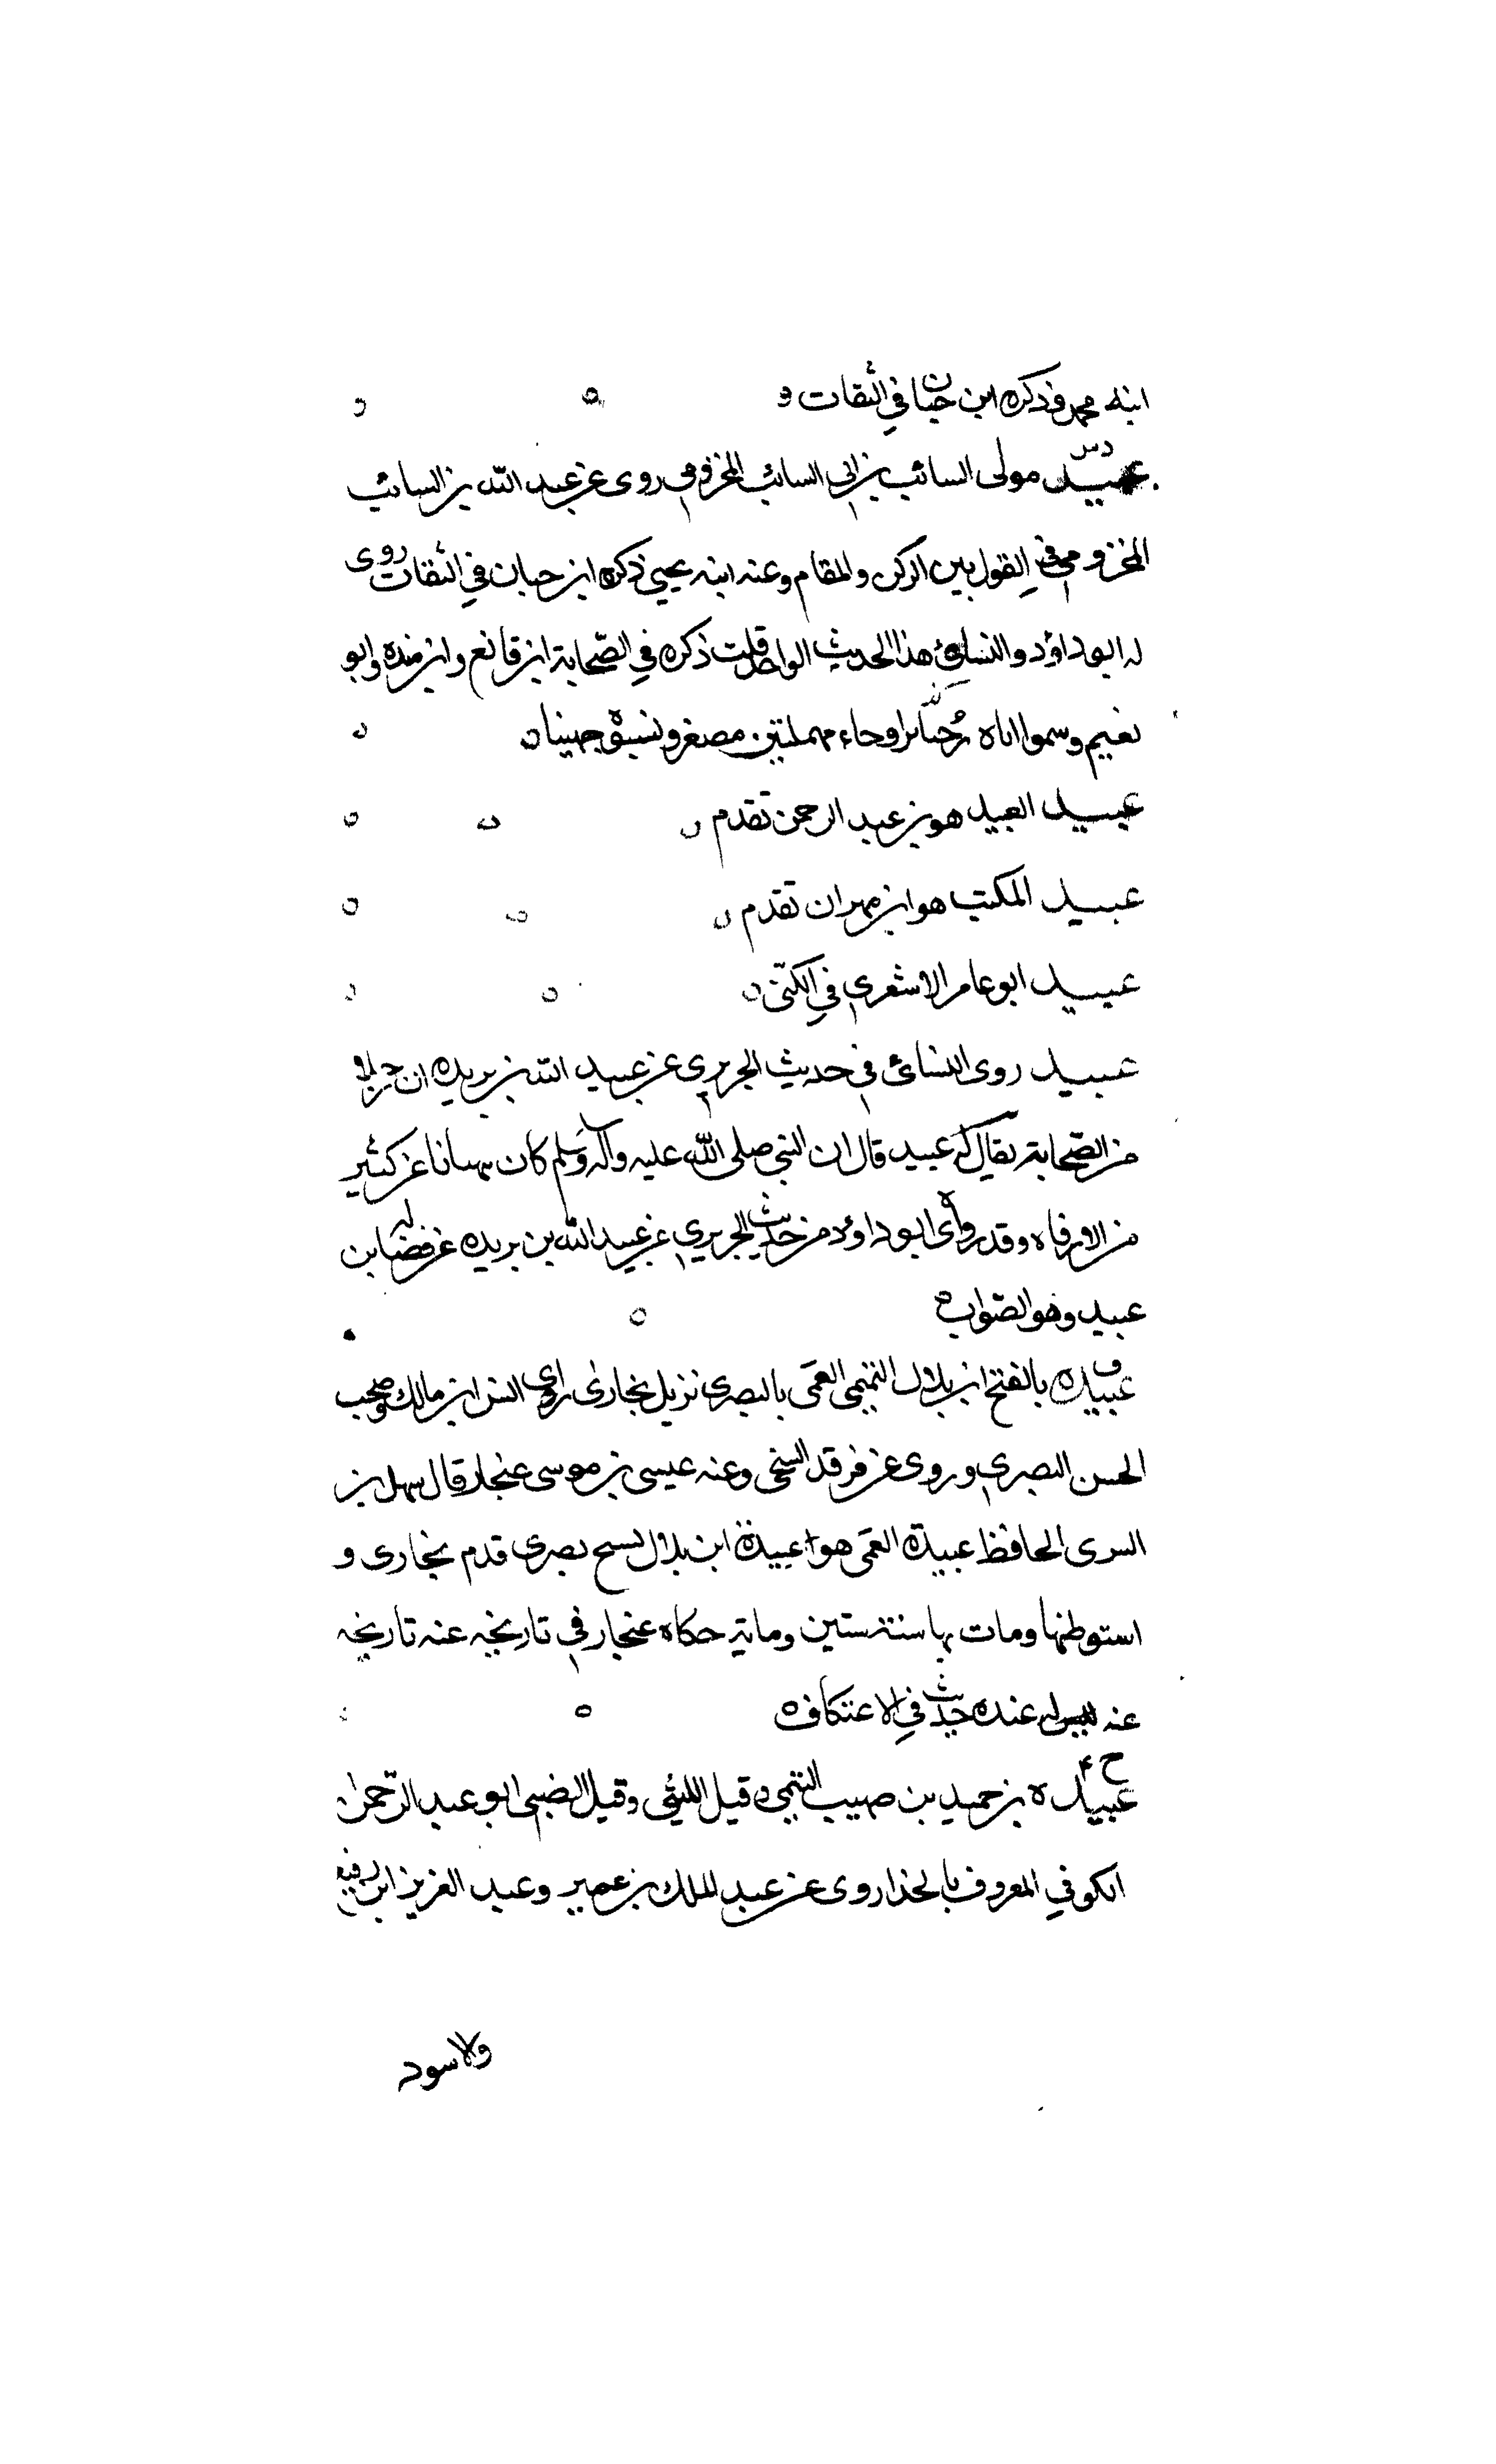 ابنه محمد وذكره ابن حبان في الثقات
دس
عبيد مولى السائب بن ابي السائب المخزومي روى عن عبد الله بن السائب
المخزومي في القول بين الركن والمقام وعنه ابنه يحيى ذكره ابن حبان في الثقات روى
له ابو داؤد والنسائي هذا الحديث الواحد قلت ذكره في الصحابة ابن قانع وابن منده وابو
نعيم وسموا اباه رُحيا براو حاء مهملتين مصغر ونسبوه جهينا
عبيد العبيد هو بن عبد الرحمن تقدم
عبيد المكتب هو ابن مهران تقدم
عبيد ابو عامر الاشعري في الكنى
عبيد روى النسائي في حديث الجريري عن عبيد الله بن بريده ان رجلا
من الصحابة يقال له عبيد قال ان النبي صلى الله عليه وآله وسلم كان ينهانا عن كثير
من الارفاه وقد رواه ابو داؤد من حديث الجريري عن عبيد الله بن بريده عن فضاله بن
عبيد وهو الصواب
ق
عبيده بالفتح ابن بلال التميمي العمى بالبصرى نزيل بخارى راى انس ابن مالك وصحب
الحسن البصري وروى عن فرقد السنجى وعنه عيسى بن موسى غنجار قال سهل بن
السرى الحافظ عبيدة العمى هو عبيدة ابن بلال بصرى قدم بخارى و
استوطنها ومات بها سنة ستين ومائة حكاه غنجار في تاريخه عنه تاريخه
عنه ليس له عنده حديث في الاعتكاف
خ ٤
عبيده بن حميد بن صهيب التيمى وقيل الليثى وقيل الضبى ابو عبد الرحمن
الكوفي المعروف بالحذا روى عن عبد الملك بن عمير وعبد العزيز ابن رفيع
والاسود